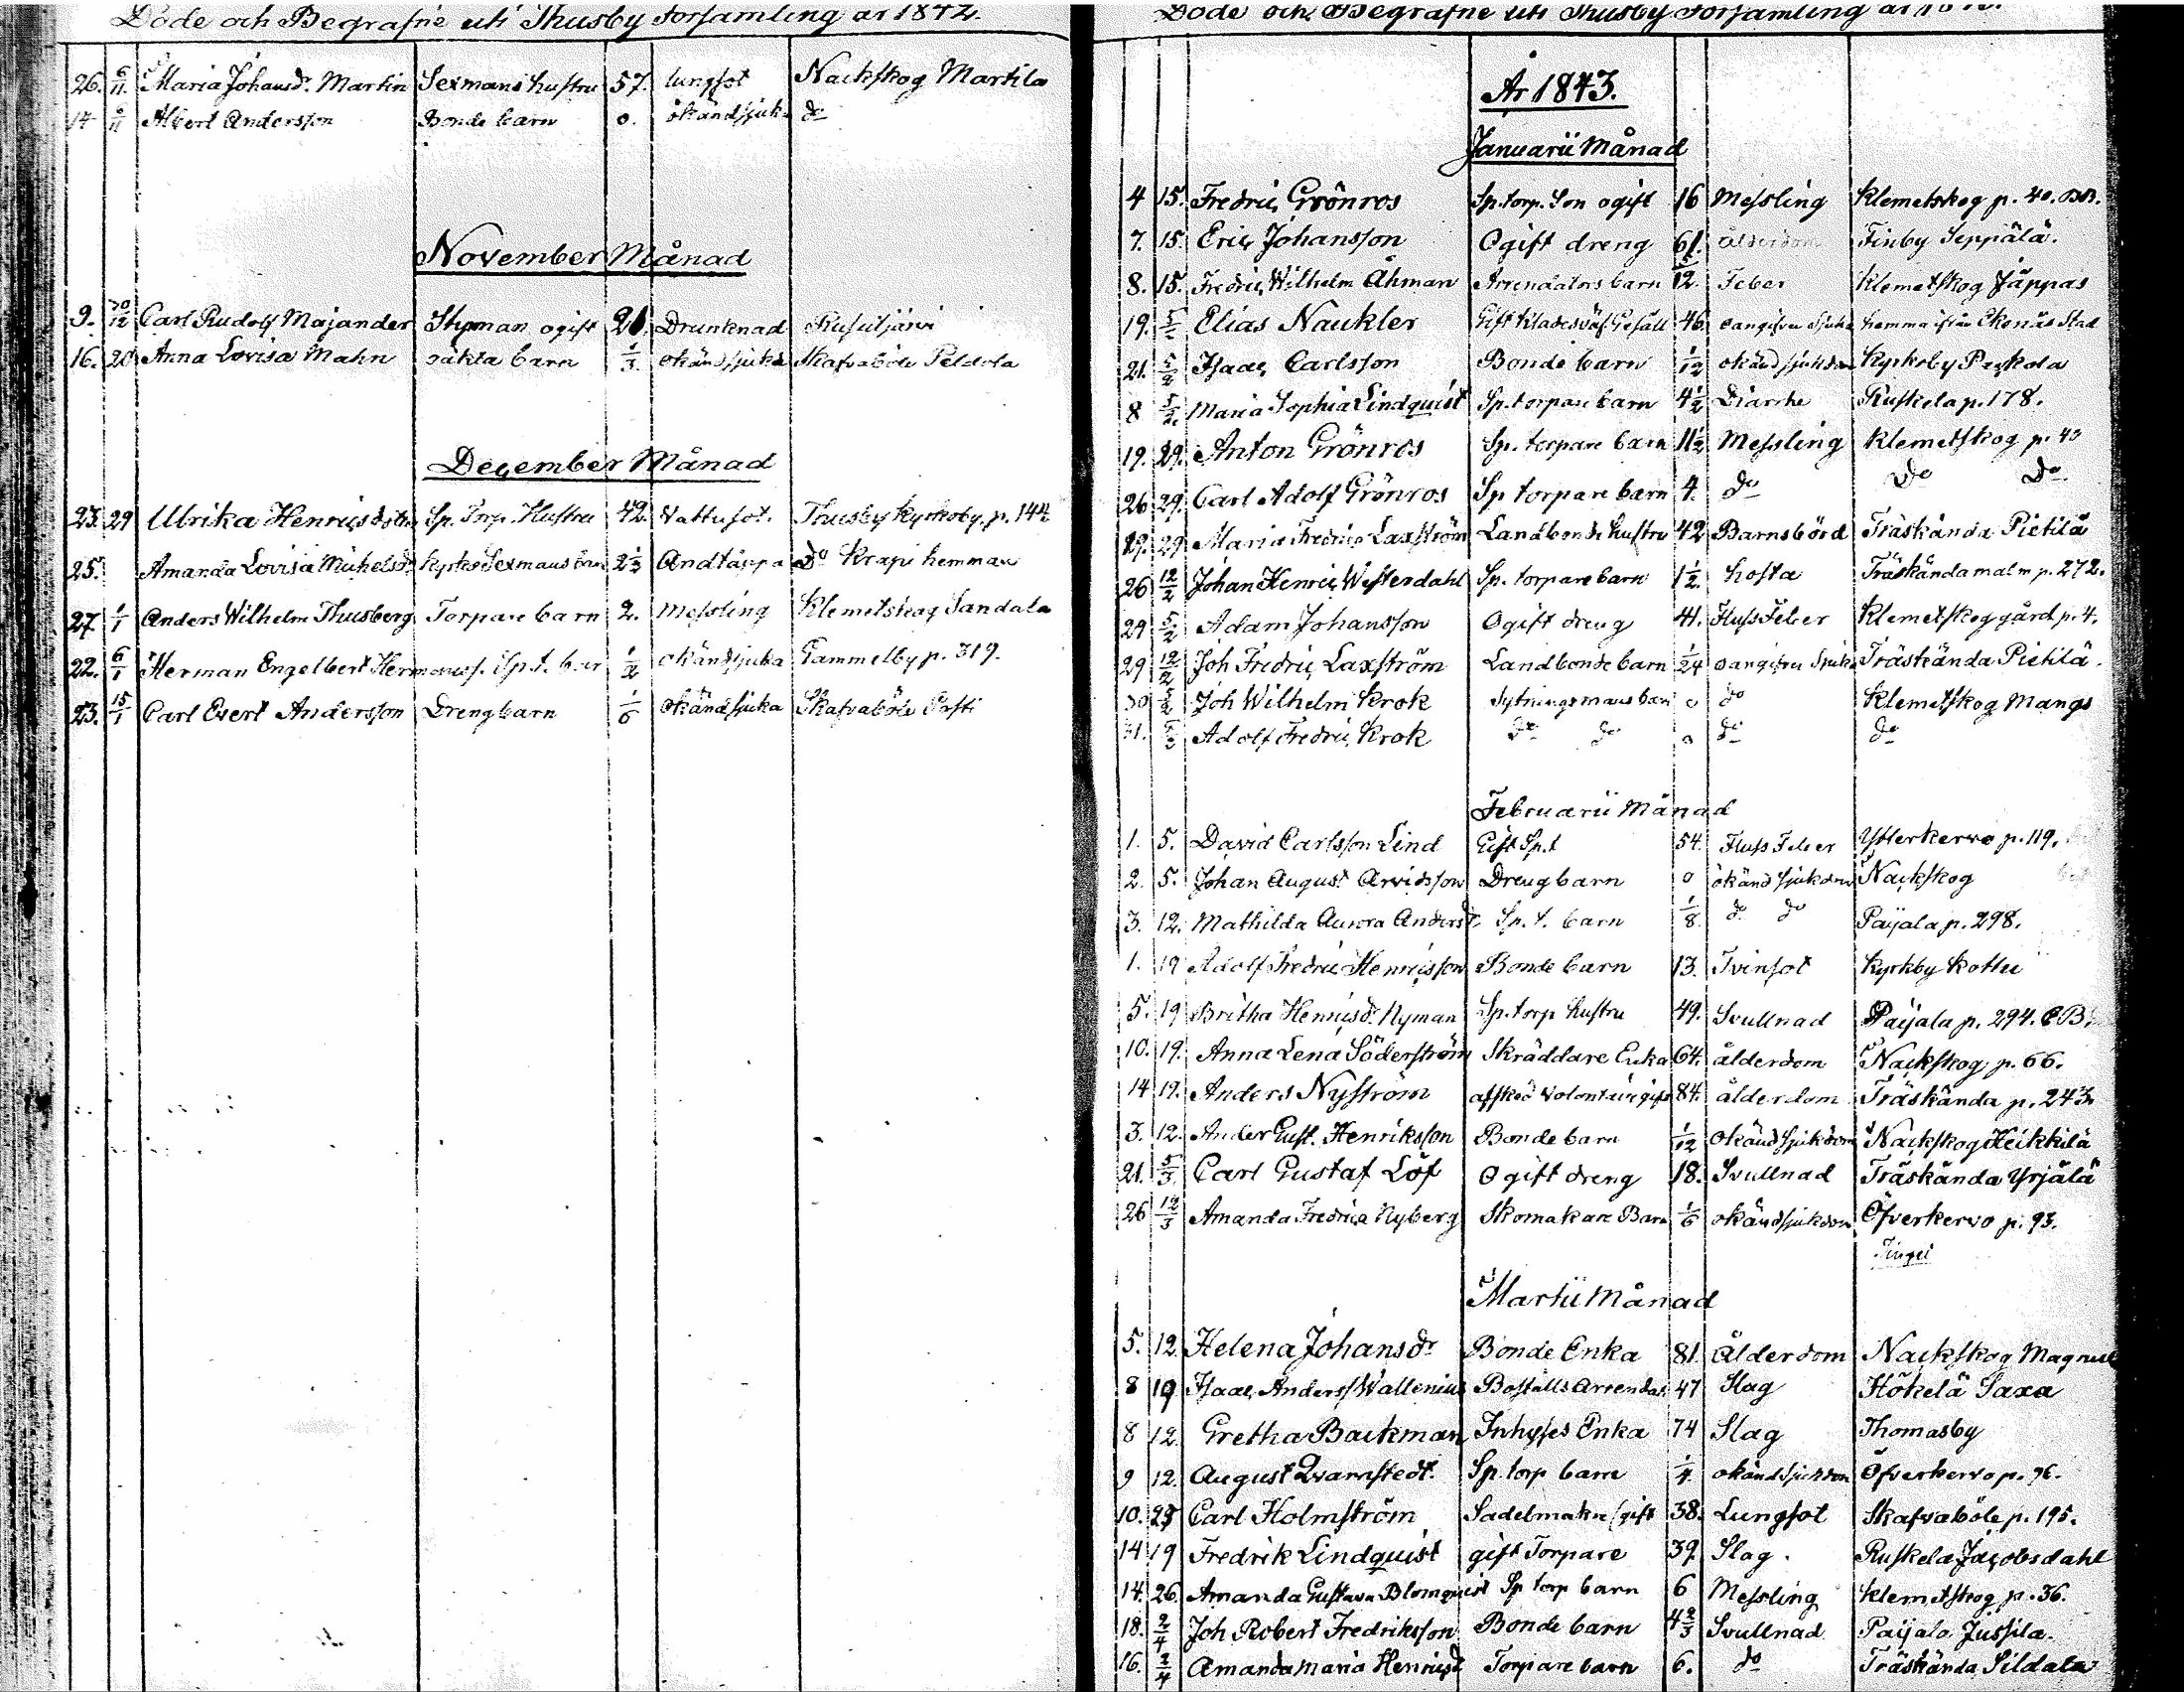 Döde och Begrafne uti Thusby Församling år 1842.
26. 6/11 Maria Johansdr. Martin Sexmans hustru 57. lungsot Nackskog Martila
14 6/11 Albert Andersson Bonde barn 0. okänd sjuk. do
November Månad
9. 30/12 Carl Rudolf Majander Styrman ogift 21. Drunknad Rusutjärvi
16. 20 Anna Lovisa Mahn oäkta barn 1/3. okänd sjuka Skafvaböle Peldola
December Månad
23. 29 Ulrika Henricsdotter Sp. Torp. Hustru 42. Vattusot. Thusby Kyrkoby. p. 144
25. Amanda Lovisa Michelsdr Kyrko Sexmans barn 2 1/3 Andtäppa do Krapi hemman
27 1/1 Anders Wilhelm Thusberg Torpare barn 2. Messling Klemetskog Sandala
22. 6/1 Herman Engelbert Hermanss. Sp. t. bar 1/2 okänd sjuka Gammelby p. 319.
23. 15/1 Carl Evert Andersson Dreng barn 1/6 okänd sjuka Skafvaböle Pasti
Döde och Begrafne uti Thusby Församling år
År 1843.
Januarii Månad
4 15. Fredric Grönros Sp. torp. Son ogift 16 Messling Klemetskog p. 40.
7. 15. Eric Johansson Ogift dreng 61. ålderdom Finby Seppälä.
8. 15. Fredric Wilhelm Åhman Arrendators barn 5/12. Feber Klemetskog Jäppas
19. 5/2 Elias Naukler Gift Klädesväf. Gesäll 46. oangifven sjuka hemma ifrån Ekenäs Stad
21. 5/2 Isaac Carlsson Bonde barn 1/12 okänd sjukdom Kyrkoby Packola
8 5/2. Maria Sophia Lindquist Sp. torpare barn 4 1/2 Diarrhe Ruskela p. 178.
19. 29. Anton Grönros Sp. torpare barn 11 1/2 Messling Klemetskog p. 43
26 29. Carl Adolf Grönros Sp torpare barn 4. do do do
19. 29 Maria Fredrica Laxström Landbonde hustru 42 Barnsbörd Träskända Pietilä
26 12/2 Johan Henric Westerdahl Sp. torpare barn 1 1/2. hosta Träskända malm p. 272.
29 5/2 Adam Johansson Ogift dreng 41. Fluss Feber Klemetskog gård p. 4.
29 12/2 Joh Fredric Laxström Landbonde barn 1/24 oangifven sjuka Träskända Pietilä.
30 5/2 Joh Wilhelm Krok Sytningsmans barn 0 do Klemetskog Mangs
31. 5/2 Adolf Fredric Krok do do 0 do do
Februarii Månad
1. 5. David Carlsson Lind Gift Sp. t 54. Fluss Feber Ytterkervo p. 119.
2. 5. Johan August Arvidsson Dreng barn 0 okänd sjukdom Nackskog
3. 12. Mathilda Aurora Andersd. Sp. t. barn 1/8 do do Paijala p. 298.
1. 19 Adolf Fredric Henricsson Bonde barn 13. Tvinsot Kyrkby Kottu
5. 19 Britha Henricsdr. Nyman Sp. torp hustru 49. Svullnad Paijala p. 294. C B.
10. 19. Anna Lena Söderström Skräddare Enka 64. ålderdom Nackskog p. 66.
14 19. Anders Nyström afsked Volontair gift 84. ålderdom Träskända p. 243.
3. 12. Ander Gust. Henriksson Bonde barn 1/12 okänd sjukdom Nackskog Heikkilä
21. 5/3 Carl Gustaf Löf Ogift dreng 18. Svullnad Träskända Yrjälä
26 12/3 Amanda Fredrica Nyberg Skomakare Barn 1/6 okänd sjukdom Öfverkervo p. 93.
Martii Månad
5. 12. Helena Johansdr Bonde Enka 81. Ålderdom Nackskog Magnus
8 19 Isaac Anderss Wallenius Boställs Arrendat. 47 Slag Hökelä Saxa
8 12. Gretha Backman Inhyses Enka 74 Slag Thomasby
9 12. August Qvarnstedt. Sp. torp barn 1/4. okänd sjukdom Öfverkervo p. 96.
10. 23 Carl Holmström Sadelmakre (gift 38. Lungsot Skafvaböle p. 195.
14 19 Fredrik Lindquist gift Torpare 39. Slag. Ruskela Jacobsdahl
14. 26. Amanda Gustava Blomquist Sp torp barn 6 Messling Klemetskog p. 36.
18. 2/4 Joh Robert Fredriksson Bonde barn 4 2/3 Svullnad Paijala Jussila.
16. 2/4 Amanda Maria Henricsd Torpare barn 6. do Träskända Sildala